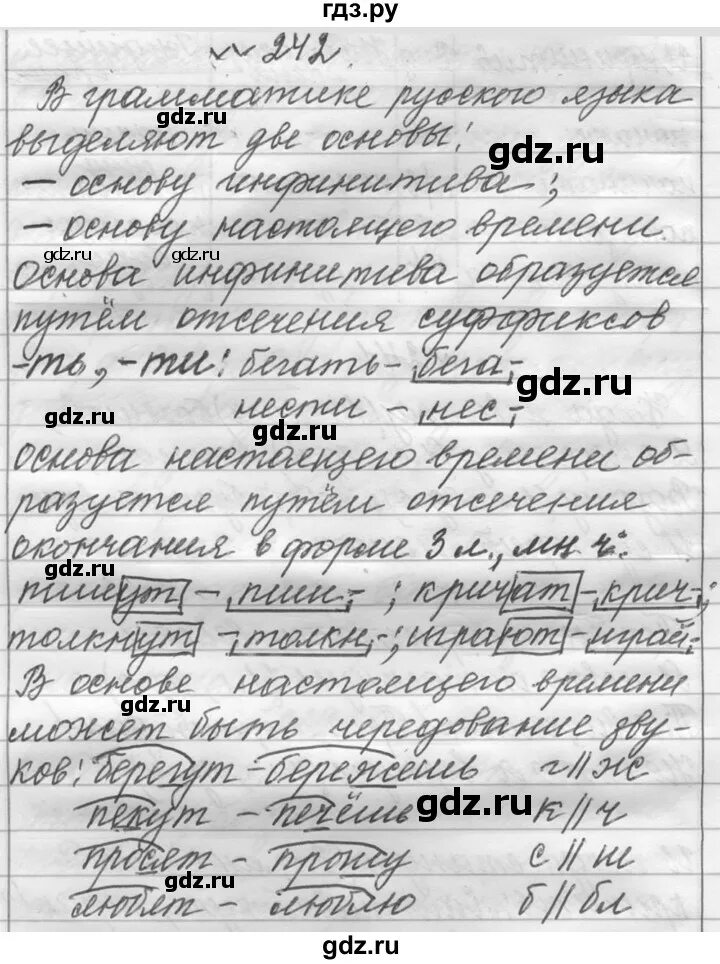 гдз.ру
№ 242.
В грамматике русского языка
gdz.ru
выделяют две основы:
gdz.ru
– основу инфинитива;
– основу настоящего времени.
gdz.ru gdz.ru
Основа инфинитива образуется
путём отсечения суффиксов
-ть, -ти: бегать – бега-
gdz.ru
gdz.ru нести – нес-
gdz.ru
основа настоящего времени об-
разуется путём отсечения
окончания в форме 3 л., мн.ч.:
gdz.ru
пишут – пиш- ; кричат – крич-;
толкнут – толкн-; играют – играй-
В основе настоящего времени
gdz.ru
может быть чередование зву-
ков: берегут – бережешь г//ж
gdz.ru
пекут – печёшь к//ч
просят – прошу с//ш
gdz.ru
любят – люблю б//бл
gdz.ru